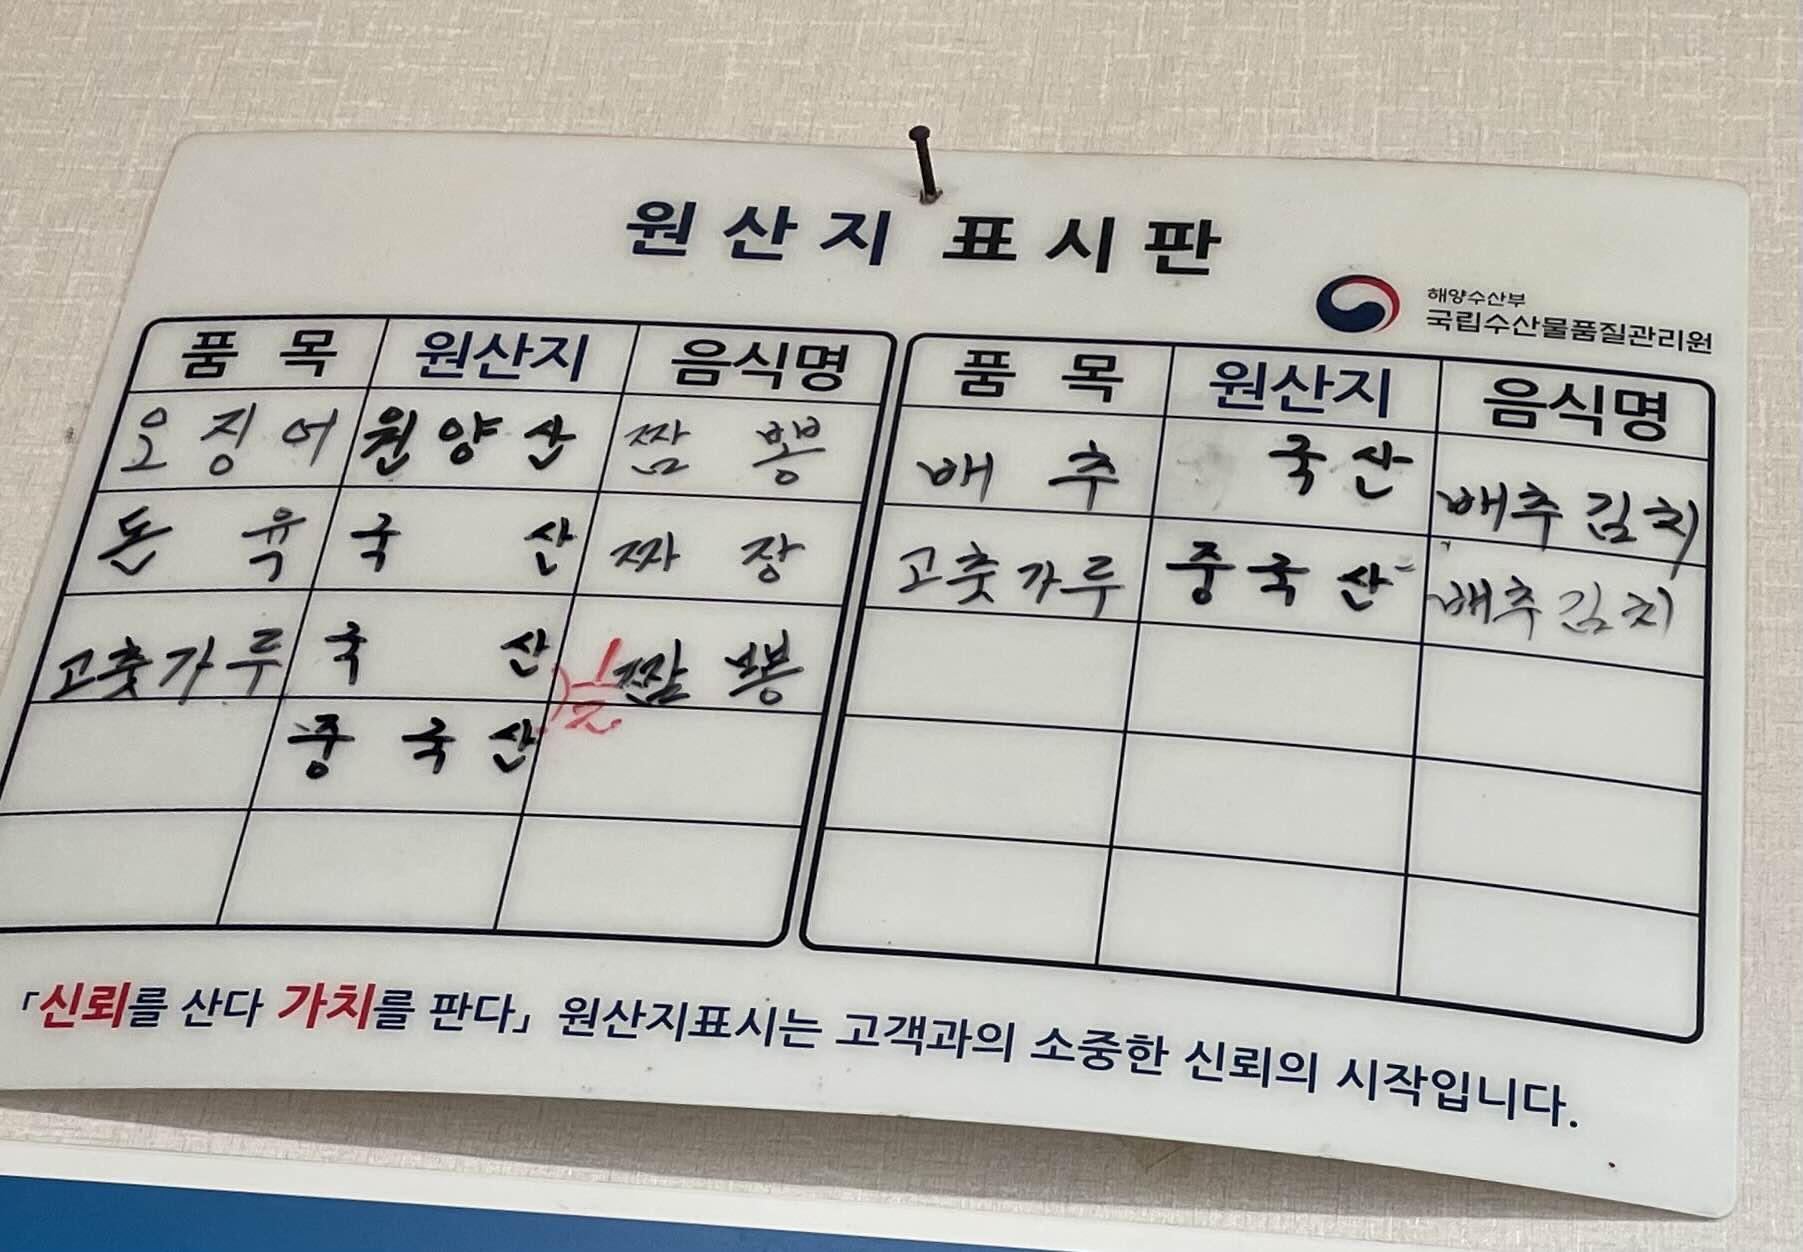 원산지 표시판
해양수산부
국립수산물품질관리원
품 목 원산지 음식명
오징어 원양산 짬뽕
돈육 국산 짜장
고춧가루 국산 1/2 짬뽕
중국산
품 목 원산지 음식명
배추 국산 배추김치
고춧가루 중국산 배추김치
「신뢰를 산다 가치를 판다」 원산지표시는 고객과의 소중한 신뢰의 시작입니다.